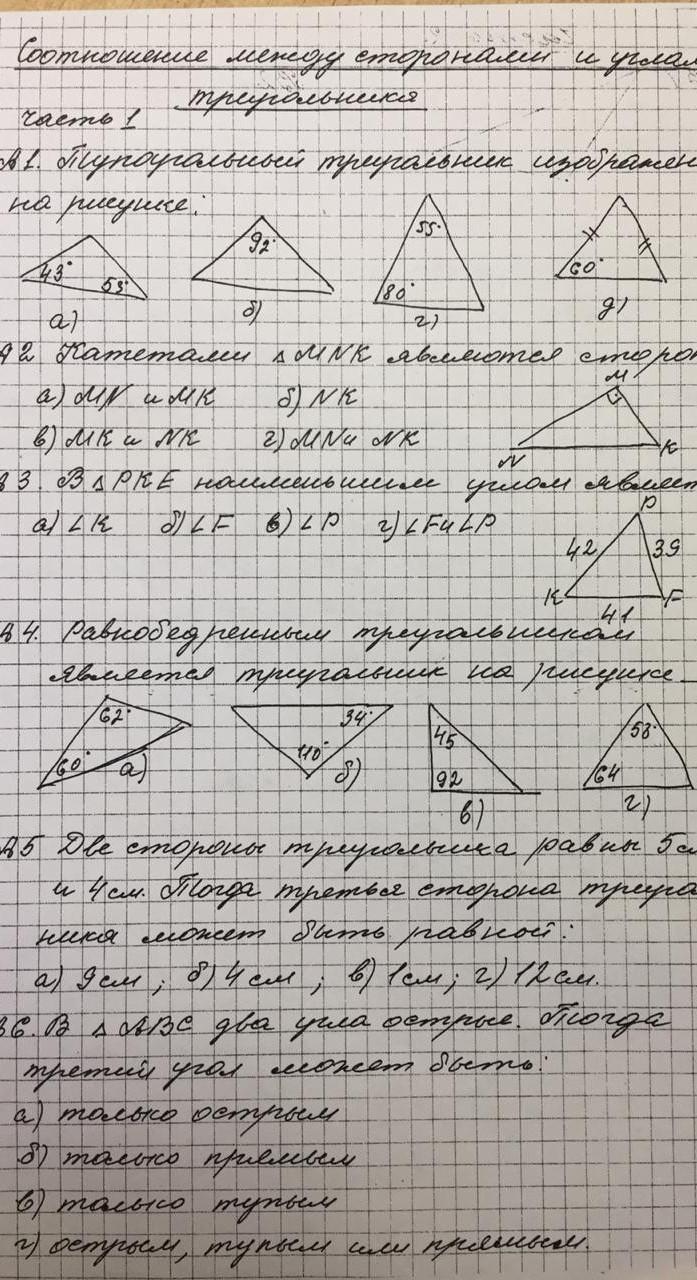 Соотношение между сторонами и углам
треугольника
часть 1
А1. Тупоугольный треугольник изображен
на рисунке:
43° 53° 92° 55° 80° 60°
а) б) г) д)
А2 Катетами △MNK являются сторон
а) MN и MK б) NK
в) MK и NK г) MN и NK
M N K
А3. В △PKE наименьшим углом являет
а) ∠K б) ∠F в) ∠P г) ∠F и ∠P
P 42 39 K F 41
А4. Равнобедренным треугольником
является треугольник на рисунке
62° 60° 34° 110° 45 92 58° 64
а) б) в) г)
А5 Две стороны треугольника равны 5см
и 4см. Тогда третья сторона треуго
ника может быть равной:
а) 9см; б) 4см; в) 1см; г) 12см.
А6. В △ABC два угла острые. Тогда
третий угол может быть:
а) только острым
б) только прямым
в) только тупым
г) острым, тупым или прямым.